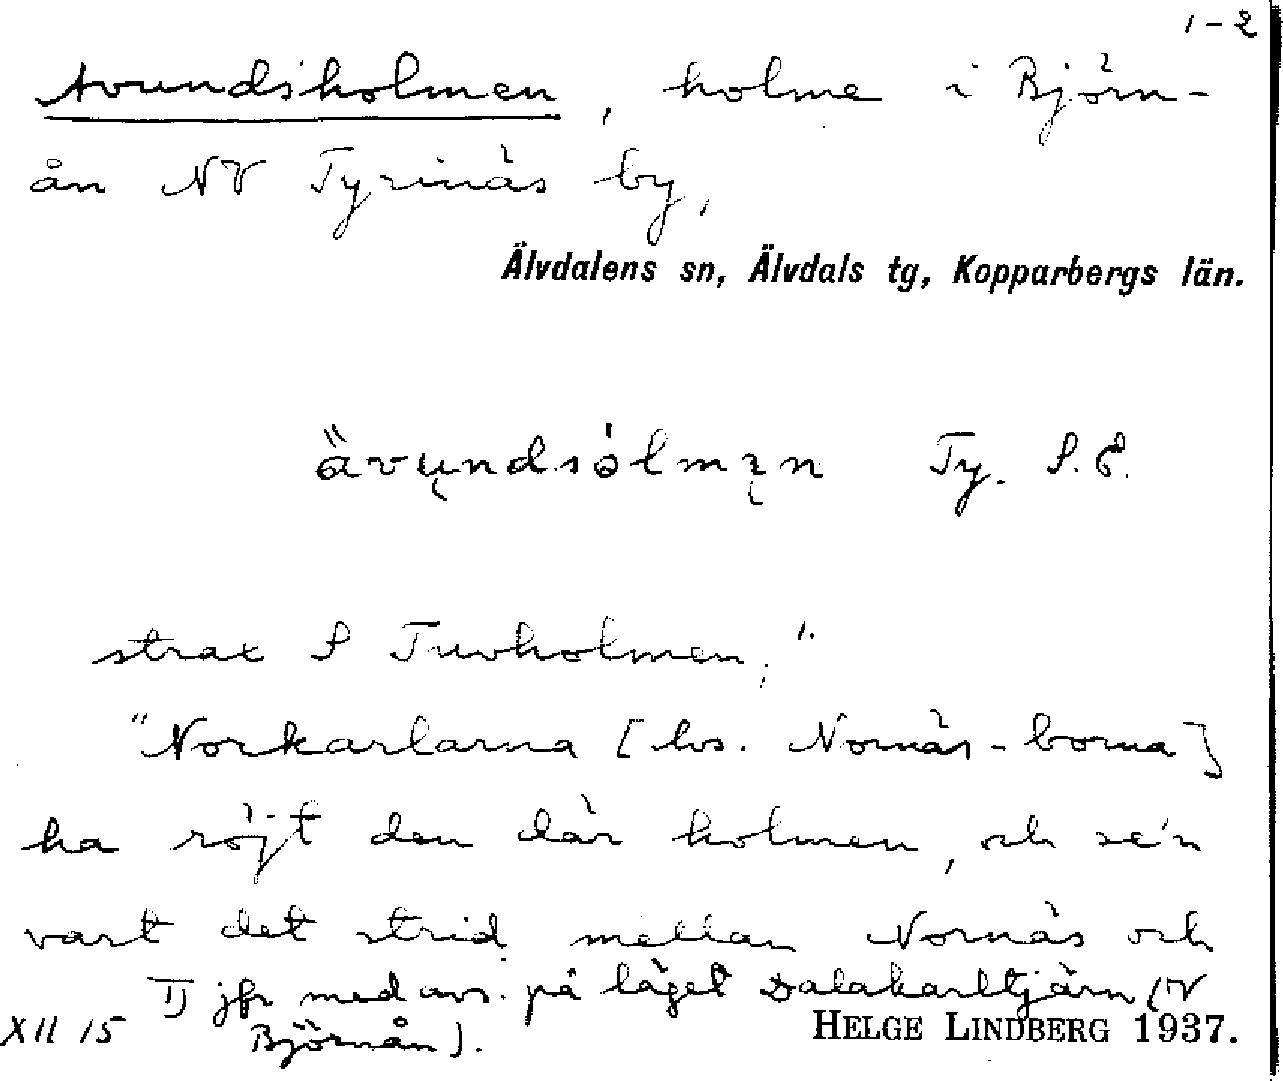 1-2
Avundsholmen, holme i Björn-
ån NV Tyrinäs by,
Älvdalens sn, Älvdals tg, Kopparbergs län.
Ty. S. E.
strax S Tuvholmen;
"Norkarlarna [hs. Nornäs-borna]
ha röjt den där holmen, och se'n
vart det strid mellan Nornäs och
1) jfr med avs. på läget Dalakarltjärn (V
Björnån).
XII 15
HELGE LINDBERG 1937.